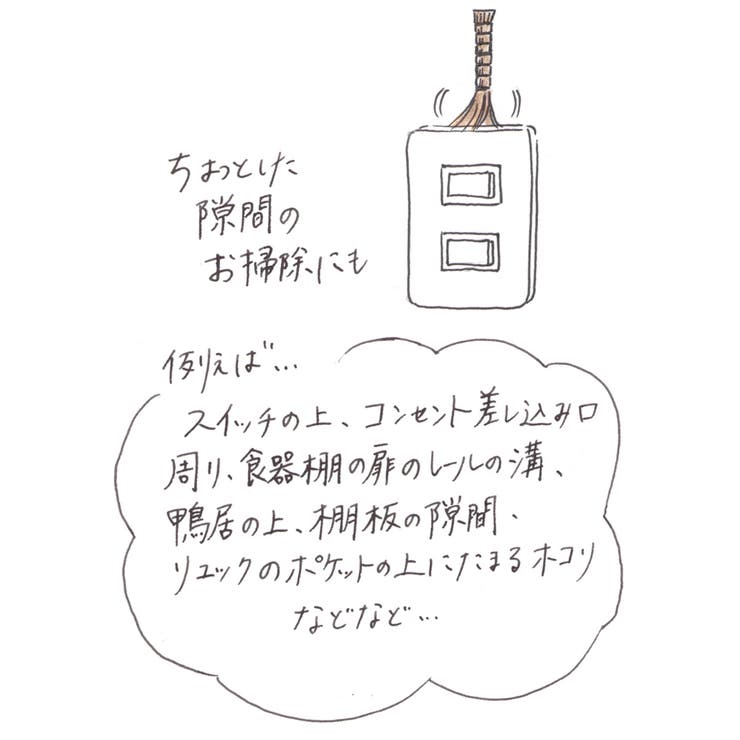 ちょっとした
隙間の
お掃除にも
例えば…
スイッチの上、コンセント差し込み口
周り、食器棚の扉のレールの溝、
鴨居の上、棚板の隙間、
リュックのポケットの上にたまるホコリ
などなど…